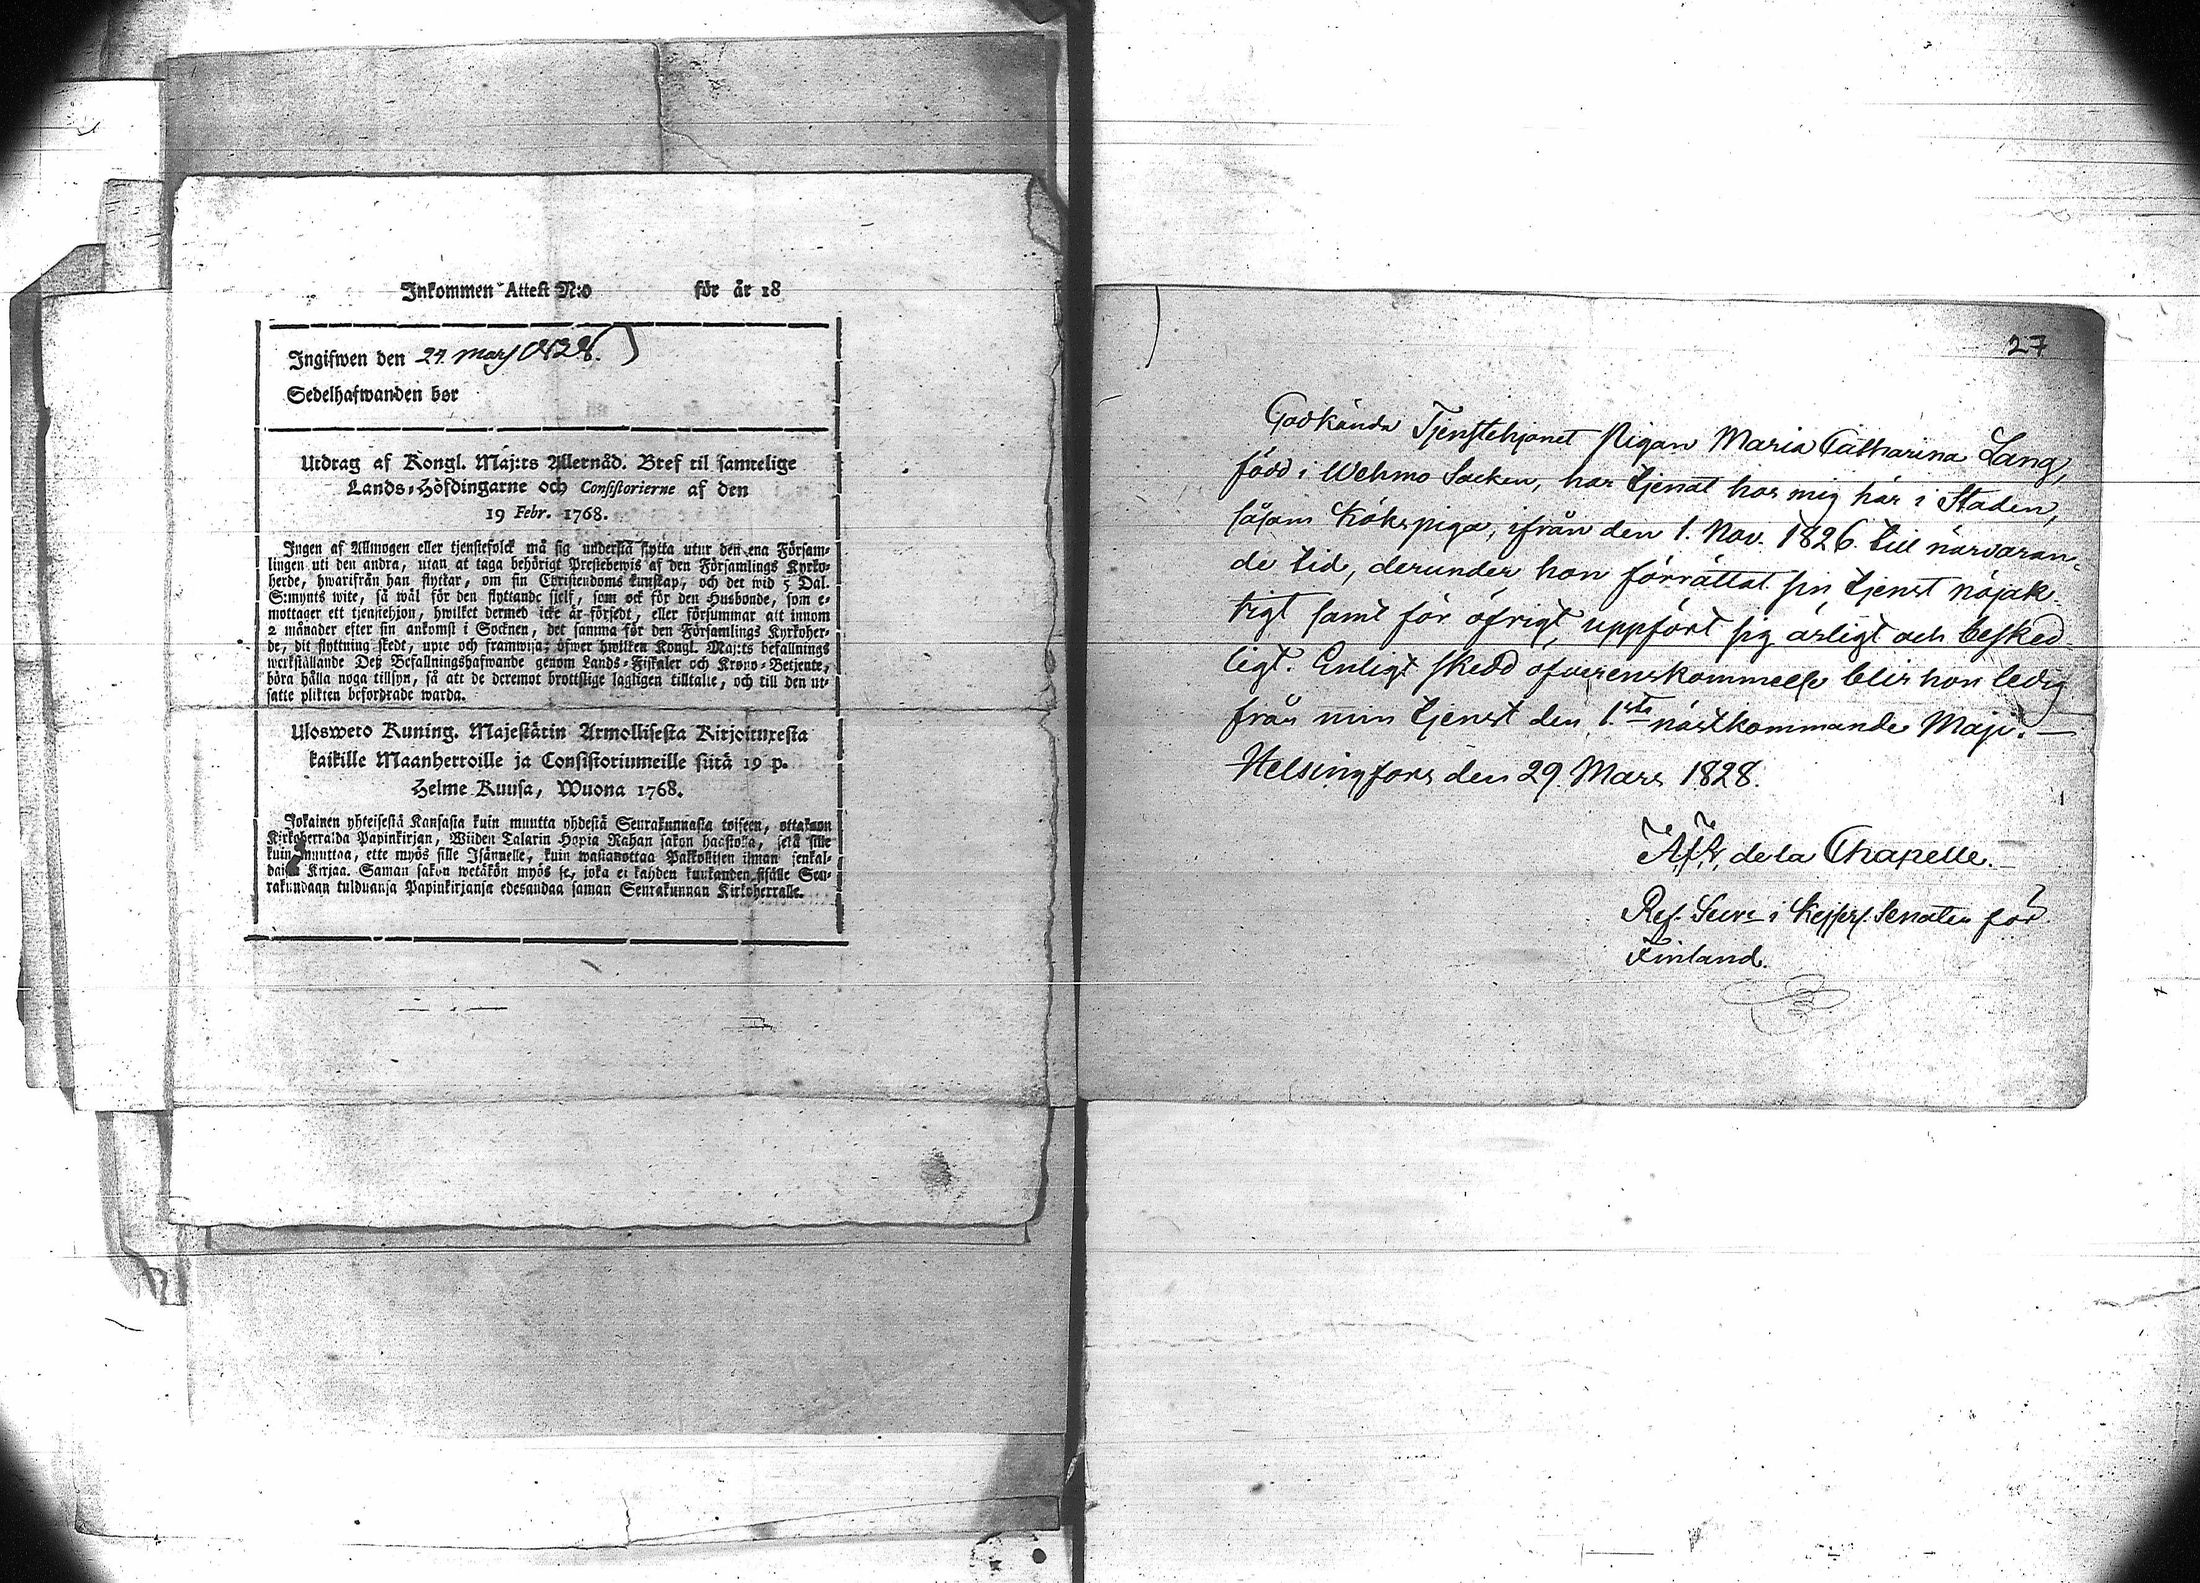 Inkommen Attest N:o för år 18
Ingifwen den 24 mars 1828.
Sedelhafwanden bor
Utdrag af Kongl. Maj:ts Allernåd. Bref til samtelige
Lands-Höfdingarne och Consistorierne af den
19 Febr. 1768.
Ingen af Allmogen eller tjenstefolck må sig understå flytta utur den ena Försam-
lingen uti den andra, utan at taga behörigt Prestebewis af den Församlings Kyrko-
herde, hwarifrån han flyttar, om sin Christendoms kunskap, och det wid 5 Dal.
S:mynts wite, så wäl för den flyttande sjelf, som ock för den Husbonde, som e-
mottager ett tjenstehjon, hwilket dermed icke är försedt, eller försummar att innom
2 månader efter sin ankomst i Socknen, det samma för den Församlings Kyrkoher-
de, dit flyttning skedt, upte och framwisa; öfwer hwilken Kongl. Maj:ts befallnings
werkställande Deß Befallningshafwande genom Lands-Fiskaler och Krono-Betjente,
böra hålla noga tillsyn, så att de deremot brottslige lagligen tilltalte, och till den ut-
satte plikten befordrade warda.
Ulosweto Kuning. Majestätin Armollisesta Kirjoituxesta
kaikille Maanherroille ja Consistoriumeille siitä 19 p.
Helme Kuusa, Wuona 1768.
Jokainen yhteisestä Kansasta kuin muutta yhdestä Seurakunnasta toiseen, ottakaon
Kirkoherralda Papinkirjan, Wiiden Talarin Hopia Rahan sakon haastolla, sekä sille
kuin muuttaa, ette myös sille Isännelle, kuin wastanottaa Palkollisen ilman senkal-
daista Kirjaa. Saman sakon wetäkön myös se, joka ei kahden kuukauden sisälle Seu-
rakundaan tulduansa Papinkirjansa edesandaa saman Seurakunnan Kirkoherralle.
27
Godkända Tjenstehjonet Pigan Maria Catharina Lang,
född i Wehmo Socken, har tjenat hos mig här i Staden,
såsom Kökspiga, ifrån den 1. Nov. 1826. till närvaran-
de tid, derunder hon förrättat sin tjenst nöjak-
tigt samt för öfrigt uppfört sig ärligt och besked-
ligt. Enligt skedd öfverenskommelse blir hon ledig
från min tjenst den 1.sta nästkommande Maji. —
Helsingfors den 29. Mars 1828.
de la Chapelle.
Ref. Secr. i Kejserl. Senaten för
Finland.